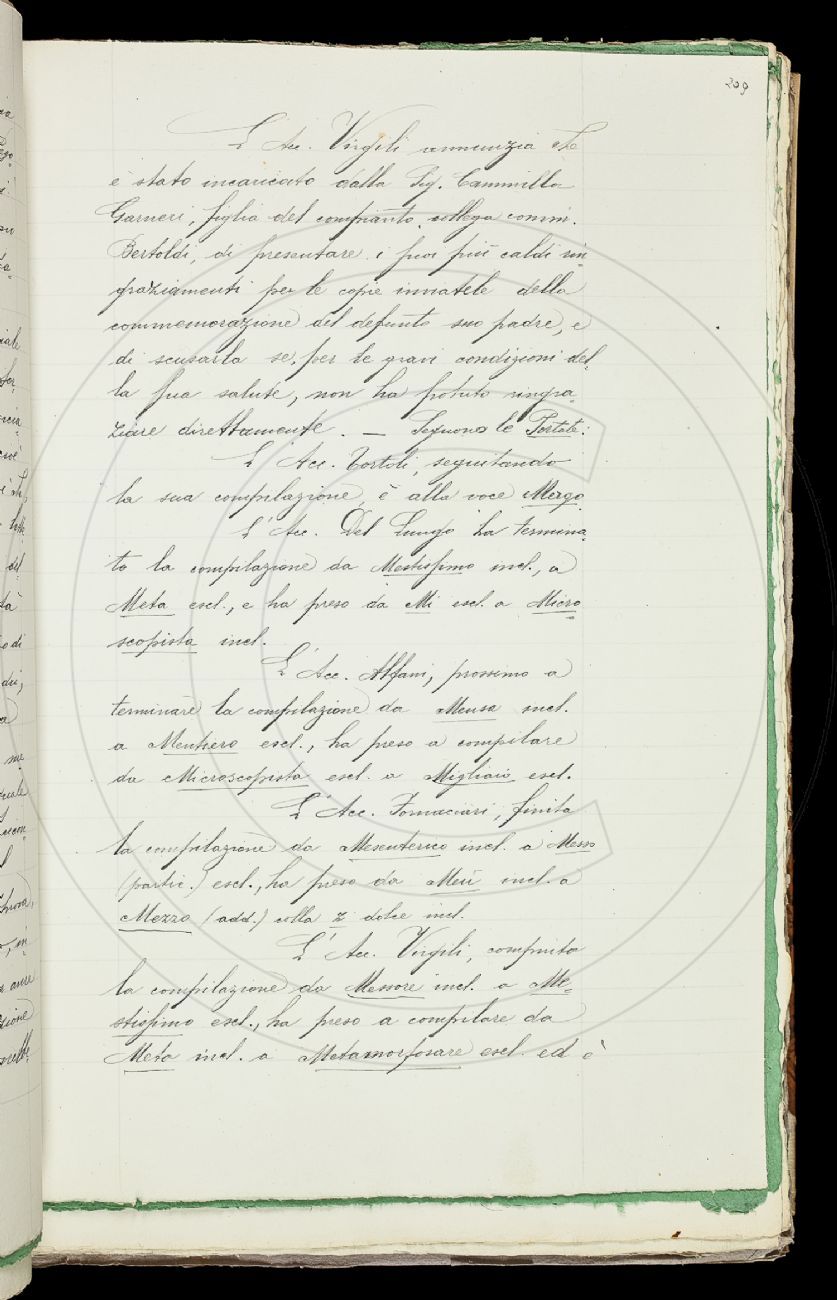 209
L'Acc. Virgili annunzia che
è stato incaricato dalla Sig. Cammilla
Garneri, figlia del compianto collega comm.
Bertoldi, di presentare i suoi più caldi rin-
graziamenti per le copie inviatele della
commemorazione del defunto suo padre, e
di scusarla se, per le gravi condizioni del-
la sua salute, non ha potuto ringra-
ziare direttamente. — Seguono le Tortate:
L'Acc. Tortoli, seguitando
la sua compilazione, è alla voce Mergo
L'Acc. Del Lungo ha termina-
to la compilazione da Mestissimo incl., a
Meta escl., e ha preso da Mi escl. a Micro-
scopista incl.
L'Acc. Alfani, prossimo a
terminare la compilazione da Mensa incl.
a Mentiero escl., ha preso a compilare
da Microscopista escl. a Migliaio escl.
L'Acc. Fornaciari, finita
la compilazione da Mesenterico incl. a Messo
(partic.) escl., ha preso da incl. a
Mezzo (add.) colla z dolce incl.
L'Acc. Virgili, compiuta
la compilazione da incl. a Me-
stissimo escl., ha preso a compilare da
Meta incl. a Metamorfosare escl. ed è